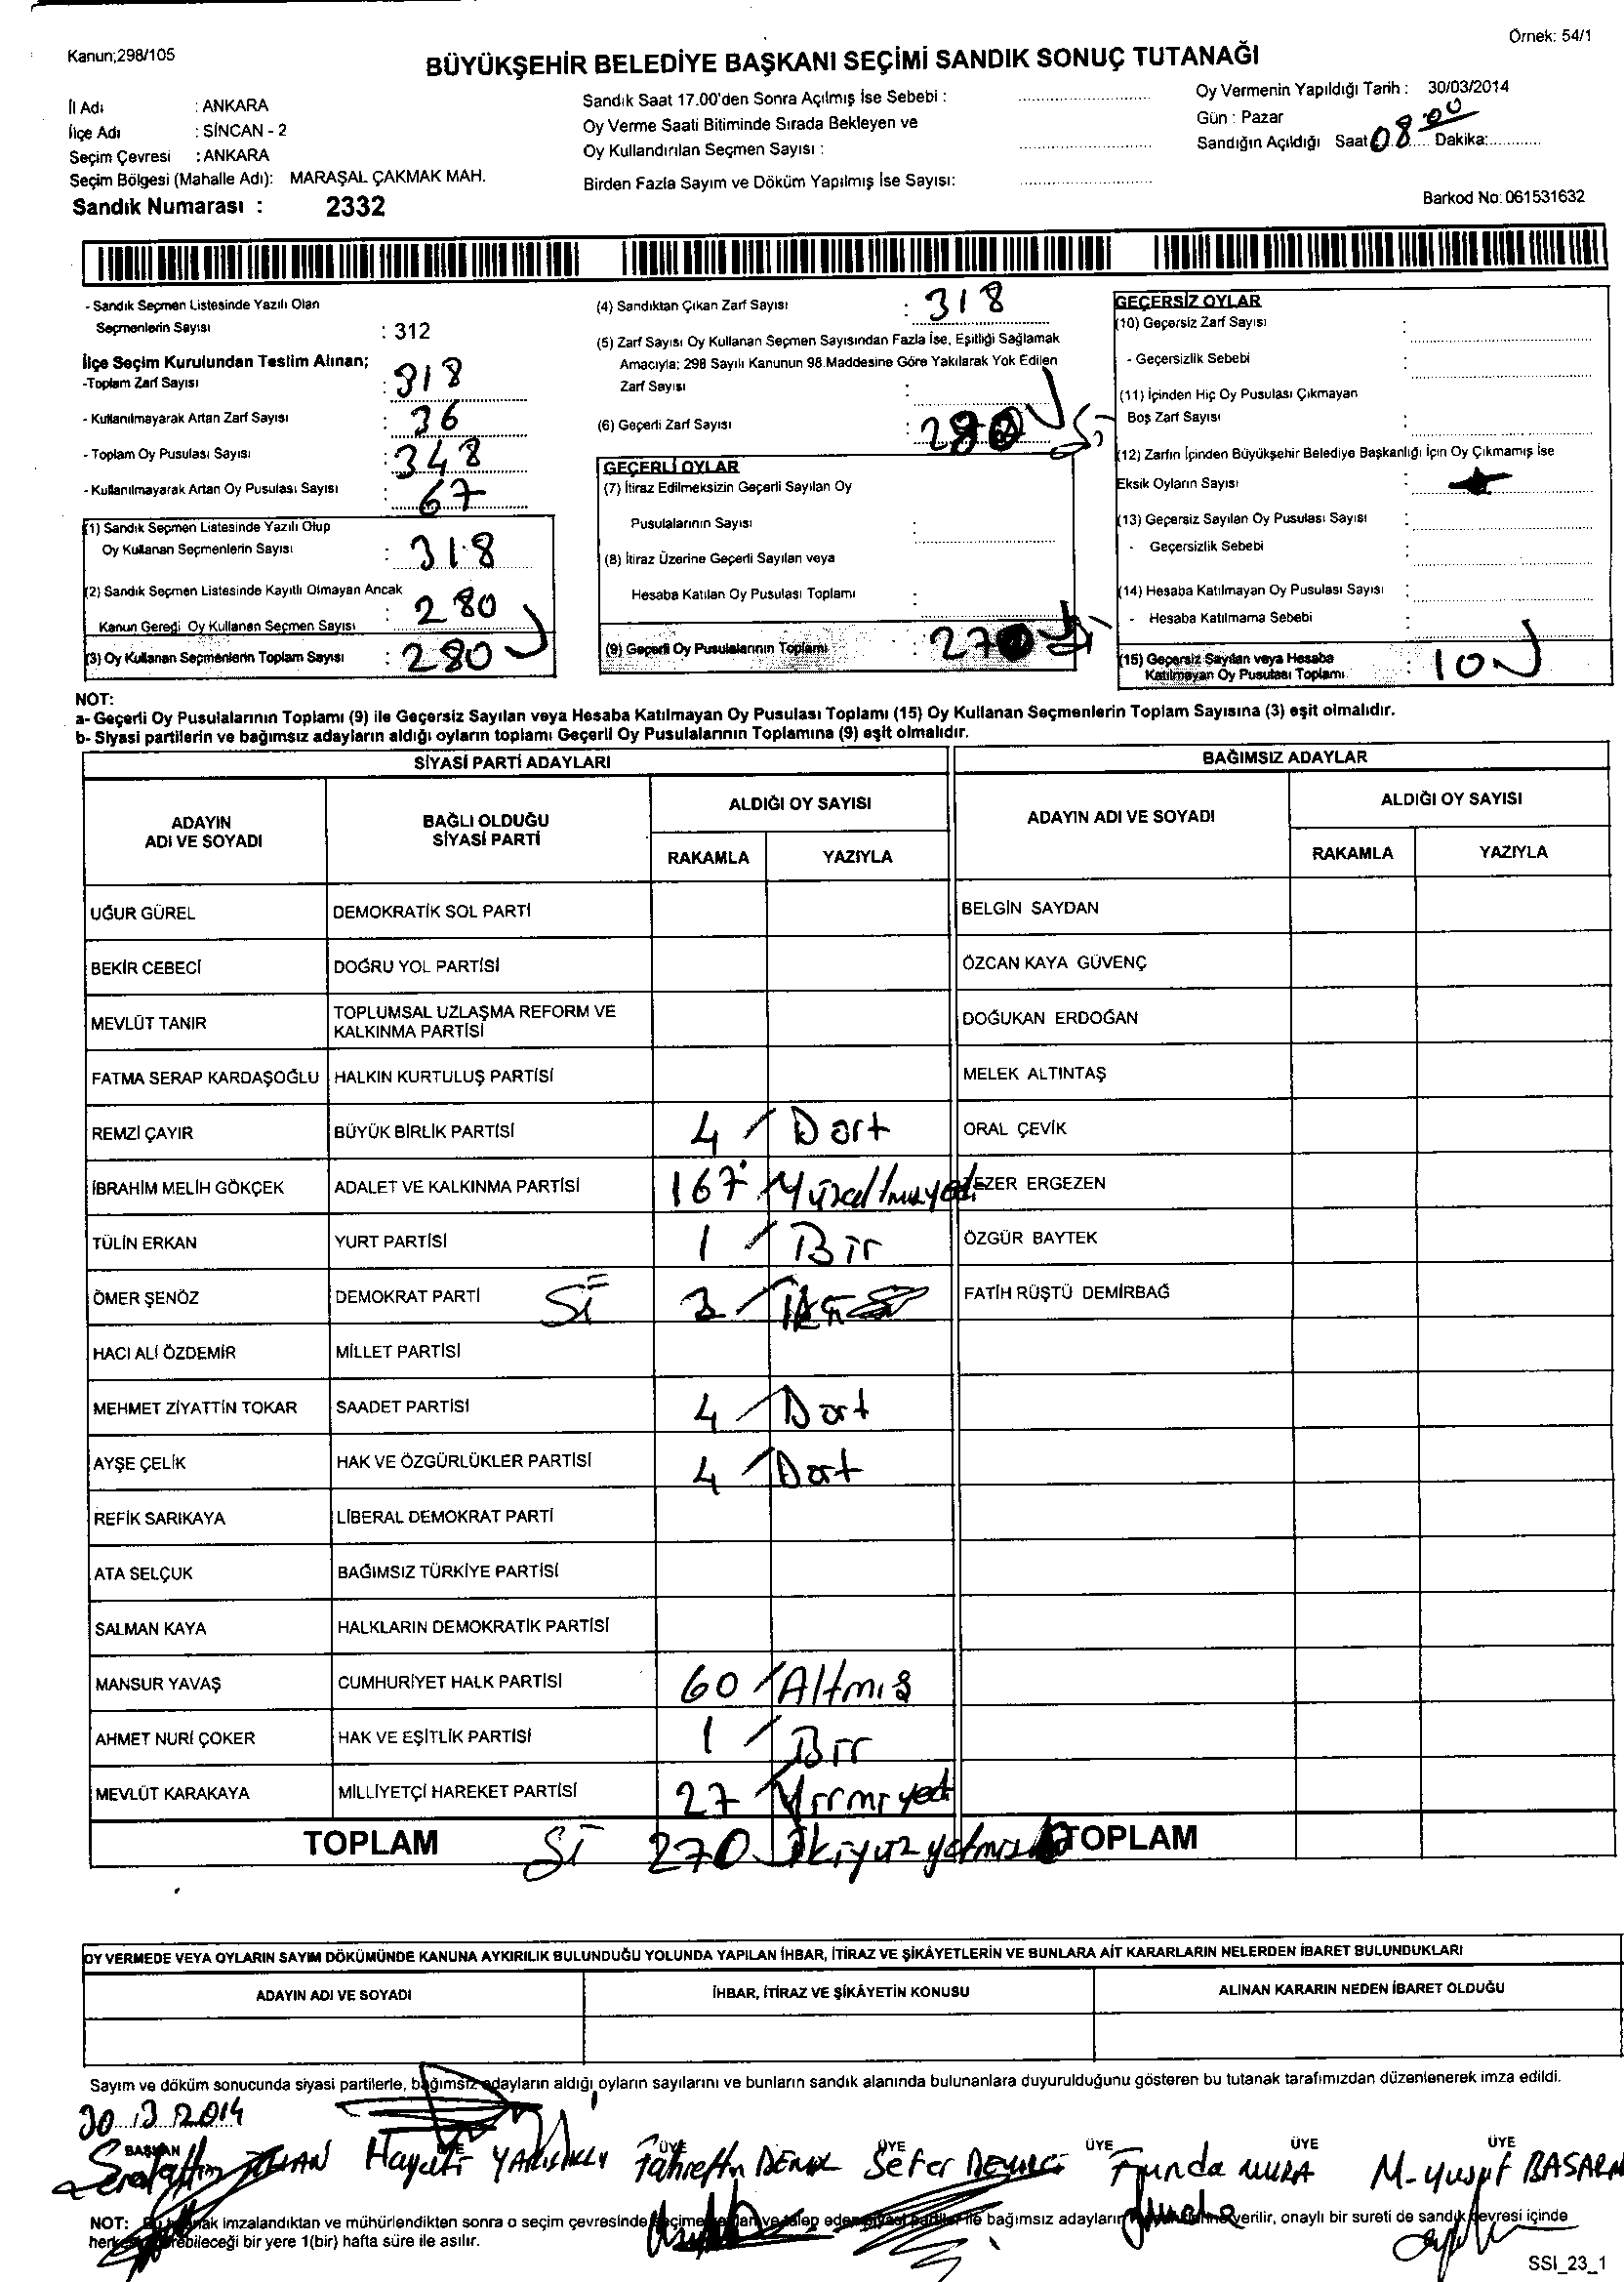 Örnek: 54/1
Kanun;298/105
BÜYÜKŞEHİR BELEDİYE BAŞKANI SEÇİMİ SANDIK SONUÇ TUTANAĞI
İl Adı : ANKARA
İlçe Adı : SİNCAN - 2
Seçim Çevresi : ANKARA
Seçim Bölgesi (Mahalle Adı): MARAŞAL ÇAKMAK MAH.
Sandık Numarası : 2332
Sandık Saat 17.00'den Sonra Açılmış İse Sebebi :
Oy Verme Saati Bitiminde Sırada Bekleyen ve
Oy Kullandırılan Seçmen Sayısı :
Birden Fazla Sayım ve Döküm Yapılmış İse Sayısı:
Oy Vermenin Yapıldığı Tarih : 30/03/2014
Gün : Pazar
Sandığın Açıldığı Saat 08.00 Dakika:
Barkod No: 061531632
- Sandık Seçmen Listesinde Yazılı Olan
Seçmenlerin Sayısı : 312
İlçe Seçim Kurulundan Teslim Alınan;
-Toplam Zarf Sayısı : 318
- Kullanılmayarak Artan Zarf Sayısı : 36
- Toplam Oy Pusulası Sayısı : 348
- Kullanılmayarak Artan Oy Pusulası Sayısı : 67
(1) Sandık Seçmen Listesinde Yazılı Olup
Oy Kullanan Seçmenlerin Sayısı : 318
(2) Sandık Seçmen Listesinde Kayıtlı Olmayan Ancak
Kanun Gereği Oy Kullanan Seçmen Sayısı : 280
(3) Oy Kullanan Seçmenlerin Toplam Sayısı : 280
(4) Sandıktan Çıkan Zarf Sayısı : 318
(5) Zarf Sayısı Oy Kullanan Seçmen Sayısından Fazla İse, Eşitliği Sağlamak
Amacıyla; 298 Sayılı Kanunun 98.Maddesine Göre Yakılarak Yok Edilen
Zarf Sayısı :
(6) Geçerli Zarf Sayısı : 280
GEÇERLİ OYLAR
(7) İtiraz Edilmeksizin Geçerli Sayılan Oy
Pusulalarının Sayısı :
(8) İtiraz Üzerine Geçerli Sayılan veya
Hesaba Katılan Oy Pusulası Toplamı :
(9) Geçerli Oy Pusulalarının Toplamı : 270
GEÇERSİZ OYLAR
(10) Geçersiz Zarf Sayısı :
- Geçersizlik Sebebi :
(11) İçinden Hiç Oy Pusulası Çıkmayan
Boş Zarf Sayısı :
(12) Zarfın İçinden Büyükşehir Belediye Başkanlığı İçin Oy Çıkmamış İse
Eksik Oyların Sayısı :
(13) Geçersiz Sayılan Oy Pusulası Sayısı :
- Geçersizlik Sebebi :
(14) Hesaba Katılmayan Oy Pusulası Sayısı :
- Hesaba Katılmama Sebebi :
(15) Geçersiz Sayılan veya Hesaba
Katılmayan Oy Pusulası Toplamı : 10
NOT:
a- Geçerli Oy Pusulalarının Toplamı (9) ile Geçersiz Sayılan veya Hesaba Katılmayan Oy Pusulası Toplamı (15) Oy Kullanan Seçmenlerin Toplam Sayısına (3) eşit olmalıdır.
b- Siyasi partilerin ve bağımsız adayların aldığı oyların toplamı Geçerli Oy Pusulalarının Toplamına (9) eşit olmalıdır.
SİYASİ PARTİ ADAYLARI BAĞIMSIZ ADAYLAR
ADAYIN ADI VE SOYADI BAĞLI OLDUĞU SİYASİ PARTİ ALDIĞI OY SAYISI ADAYIN ADI VE SOYADI ALDIĞI OY SAYISI
RAKAMLA YAZIYLA RAKAMLA YAZIYLA
UĞUR GÜREL DEMOKRATİK SOL PARTİ BELGİN SAYDAN
BEKİR CEBECİ DOĞRU YOL PARTİSİ ÖZCAN KAYA GÜVENÇ
MEVLÜT TANIR TOPLUMSAL UZLAŞMA REFORM VE KALKINMA PARTİSİ DOĞUKAN ERDOĞAN
FATMA SERAP KARDAŞOĞLU HALKIN KURTULUŞ PARTİSİ MELEK ALTINTAŞ
REMZİ ÇAYIR BÜYÜK BİRLİK PARTİSİ 4 Dört ORAL ÇEVİK
İBRAHİM MELİH GÖKÇEK ADALET VE KALKINMA PARTİSİ 167 EZER ERGEZEN
TÜLİN ERKAN YURT PARTİSİ 1 Bir ÖZGÜR BAYTEK
ÖMER ŞENÖZ DEMOKRAT PARTİ FATİH RÜŞTÜ DEMİRBAĞ
HACI ALİ ÖZDEMİR MİLLET PARTİSİ
MEHMET ZİYATTİN TOKAR SAADET PARTİSİ 4 Dört
AYŞE ÇELİK HAK VE ÖZGÜRLÜKLER PARTİSİ 4 Dört
REFİK SARIKAYA LİBERAL DEMOKRAT PARTİ
ATA SELÇUK BAĞIMSIZ TÜRKİYE PARTİSİ
SALMAN KAYA HALKLARIN DEMOKRATİK PARTİSİ
MANSUR YAVAŞ CUMHURİYET HALK PARTİSİ 60 Altmış
AHMET NURİ ÇOKER HAK VE EŞİTLİK PARTİSİ 1 Bir
MEVLÜT KARAKAYA MİLLİYETÇİ HAREKET PARTİSİ 27 Yirmiyedi
TOPLAM 270 İkiyüzyetmiş TOPLAM
OY VERMEDE VEYA OYLARIN SAYIM DÖKÜMÜNDE KANUNA AYKIRILIK BULUNDUĞU YOLUNDA YAPILAN İHBAR, İTİRAZ VE ŞİKÂYETLERİN VE BUNLARA AİT KARARLARIN NELERDEN İBARET BULUNDUKLARI
ADAYIN ADI VE SOYADI İHBAR, İTİRAZ VE ŞİKÂYETİN KONUSU ALINAN KARARIN NEDEN İBARET OLDUĞU
Sayım ve döküm sonucunda siyasi partilerle, bağımsız adayların aldığı oyların sayılarını ve bunların sandık alanında bulunanlara duyurulduğunu gösteren bu tutanak tarafımızdan düzenlenerek imza edildi.
30.3.2014
BAŞKAN ÜYE ÜYE ÜYE ÜYE ÜYE
Hayati Fahrettin Sefer DEMİRCİ Funda M-Yusuf BASARA
NOT: imzalandıktan ve mühürlendikten sonra o seçim çevresinde bağımsız adayların verilir, onaylı bir sureti de sandık çevresi içinde
bir yere 1(bir) hafta süre ile asılır.
SSI_23_1